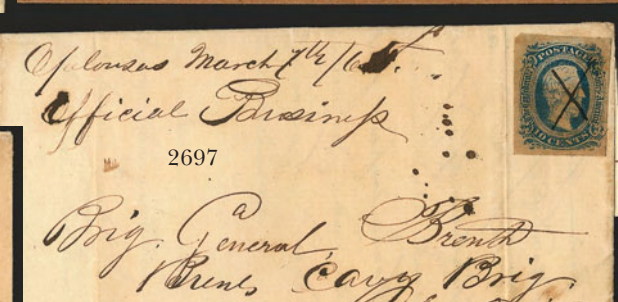 Opelousas March 7th/65
Official Business
POSTAGE
10 CENTS
2697
Brig. General, Brent
Brents Cavy Brig.